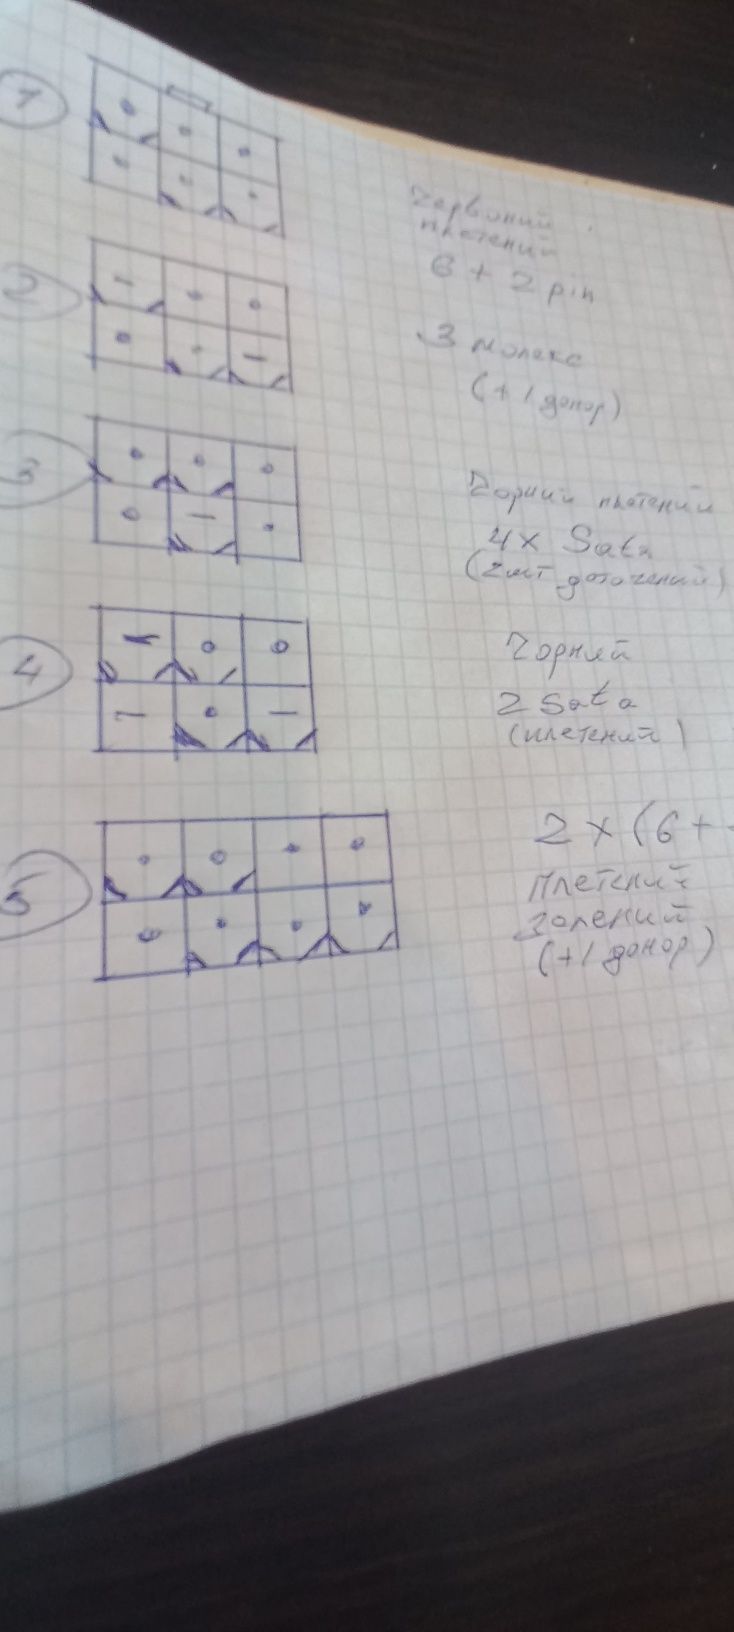 1
Червоний
плетений
6 + 2 pin
2
3 молекс
(+ 1 донор)
3
Чорний плетений
4x Sata
(2шт доточений)
4
Чорний
2 Sata
(плетений)
5
2 x (6 +
Плетений
Зелений
(+1 донор)